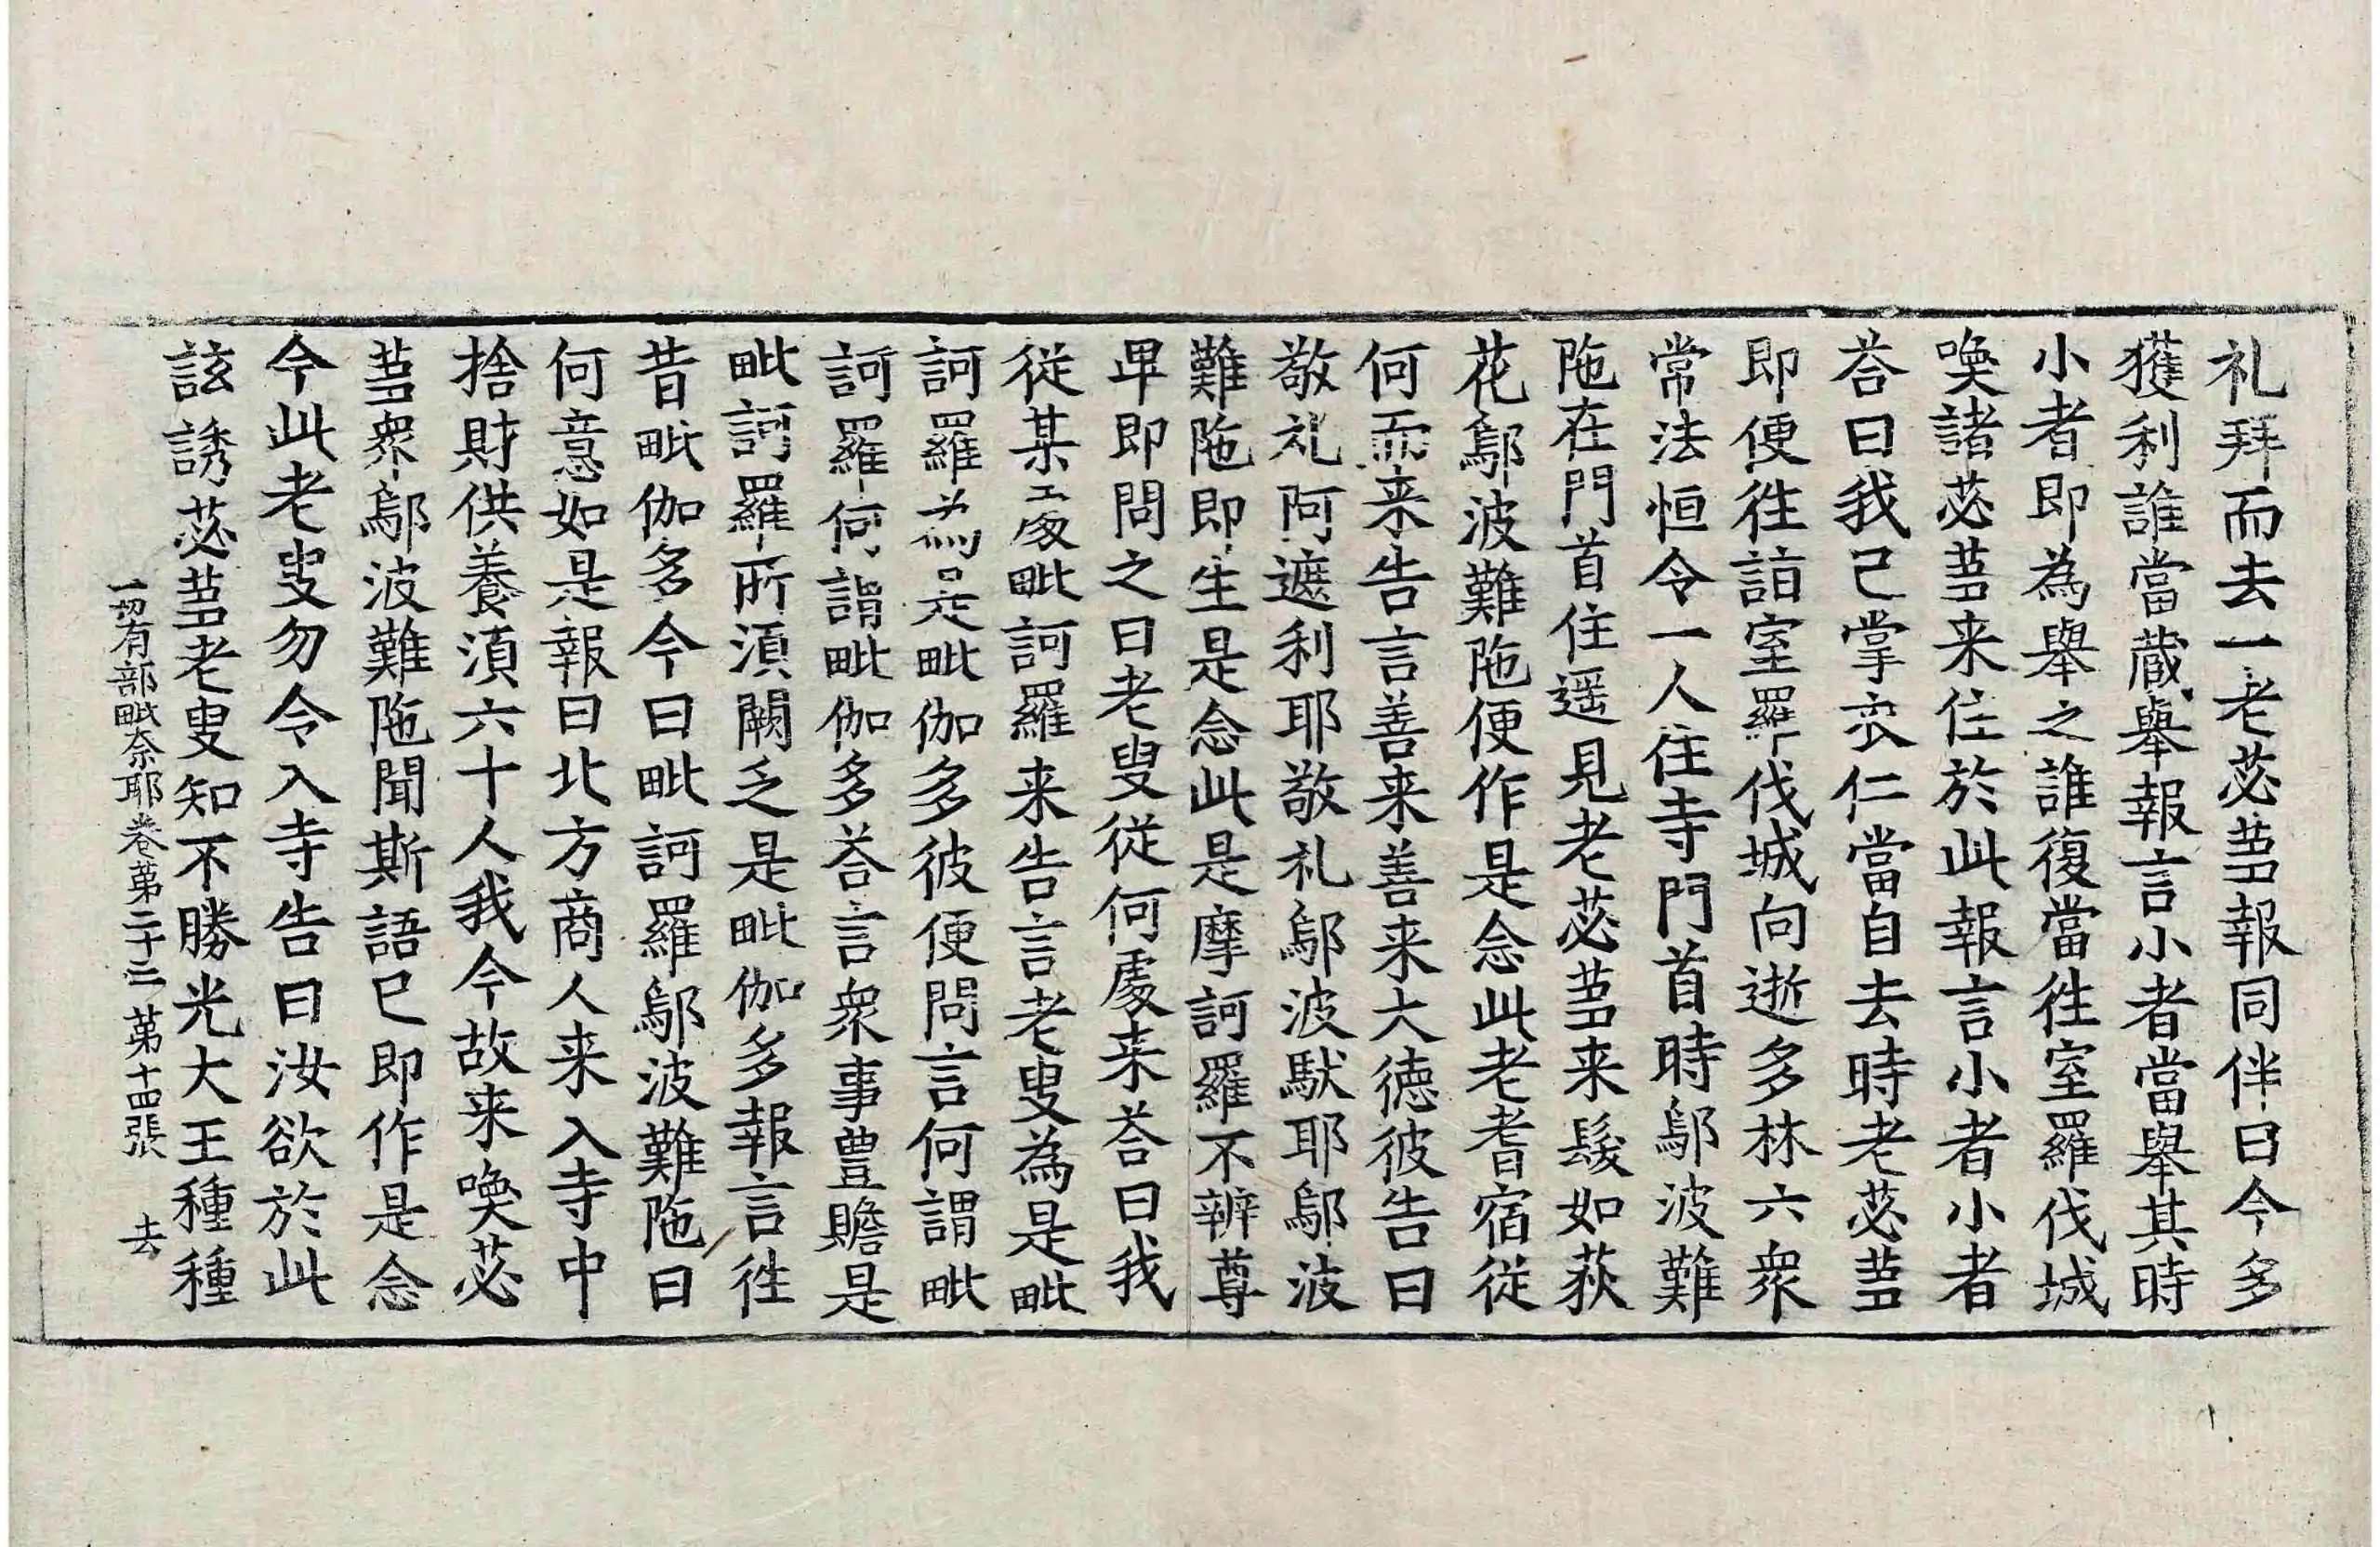 礼拜而去一老苾蒭報同伴曰今多
獲利誰當蔵舉報言小者當舉其時
小者即為舉之誰復當徃室羅伐城
喚諸苾蒭来住於此報言小者小者
荅曰我已掌衣仁當自去時老苾蒭
即便徃詣室羅伐城向逝多林六衆
常法恒令一人住寺門首時鄔波難
陁在門首住遥見老苾蒭来髮如荻
花鄔波難陁便作是念此老耆宿従
何而来告言善来善来大德彼告曰
敬礼阿遮利耶敬礼鄔波馱耶鄔波
難陁即生是念此是摩訶羅不辨尊
卑即問之曰老叟従何處来荅曰我
従某處毗訶羅来告言老叟為是毗
訶羅為是毗伽多彼便問言何謂毗
訶羅何謂毗伽多荅言衆事豊贍是
毗訶羅所湏闕乏是毗伽多報言徃
昔毗伽多今日毗訶羅鄔波難陁曰
何意如是報曰北方商人来入寺中
捨財供養湏六十人我今故来喚苾
蒭衆鄔波難陁聞斯語已即作是念
今此老叟勿令入寺告曰汝欲於此
誘苾蒭老叟知不勝光大王種種
一切有部毗奈耶卷第二十三 第十四張 去